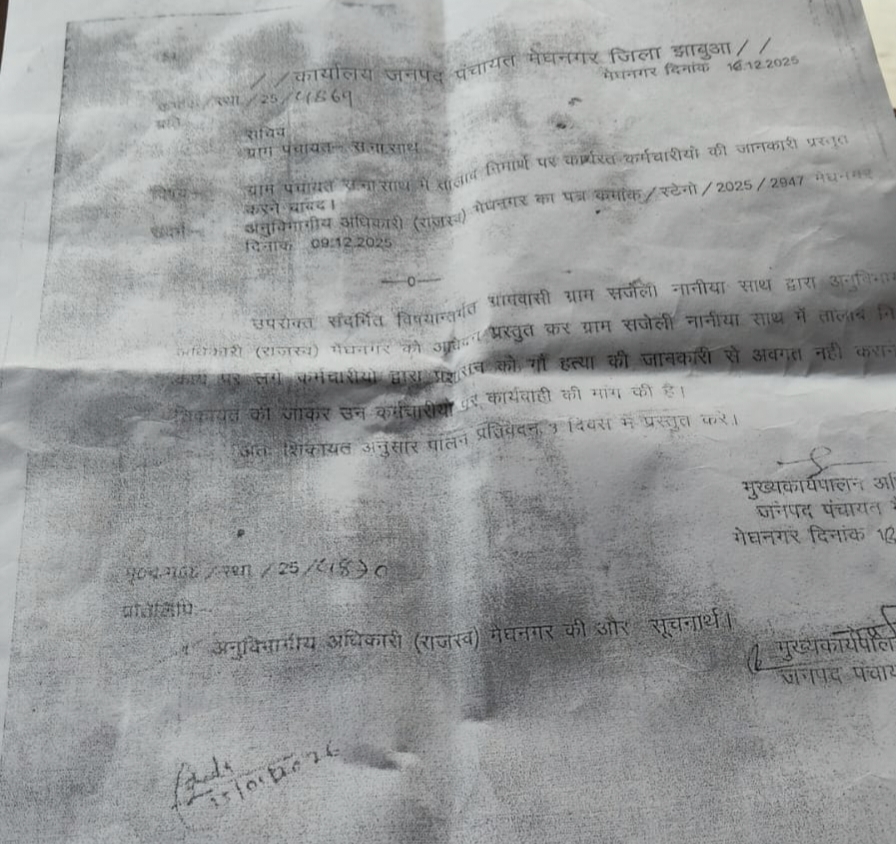 //कार्यालय जनपद पंचायत मेघनगर जिला झाबुआ//
मेघनगर दिनांक 16.12.2025
/स्था/25/4869
प्रति
सचिव
ग्राम पंचायत
विषय
ग्राम पंचायत में तालाब निमार्ण पर कार्यरत कर्मचारीयो की जानकारी प्रस्तुत
करने बाबद।
संदर्भ
अनुविभागीय अधिकारी (राजस्व) मेघनगर का पत्र कमांक/स्टेनो/2025/2947 मेघनगर
दिनांक 09.12.2025
—0—
उपरोक्त संदर्भित विषयान्तर्गत ग्रामवासी ग्राम सजेली नानीया साथ द्वारा
अधिकारी (राजस्व) मेघनगर को आवेदन प्रस्तुत कर ग्राम सजेली नानीया साथ में तालाब
कार्य पर लगे कर्मचारीयो द्वारा प्रशासन को गौ हत्या की जानकारी से अवगत नही
शिकायत की जाकर उन कर्मचारीयो पर कार्यवाही की मांग की है।
अतः शिकायत अनुसार पालन प्रतिवेदन 3 दिवस में प्रस्तुत करे।
मुख्यकार्यपालन
जनपद पंचायत
मेघनगर दिनांक
/स्था/25/4870
प्रतिलिपि
अनुविभागीय अधिकारी (राजस्व) मेघनगर की और सूचनार्थ।
मुख्यकार्यपालन
जनपद